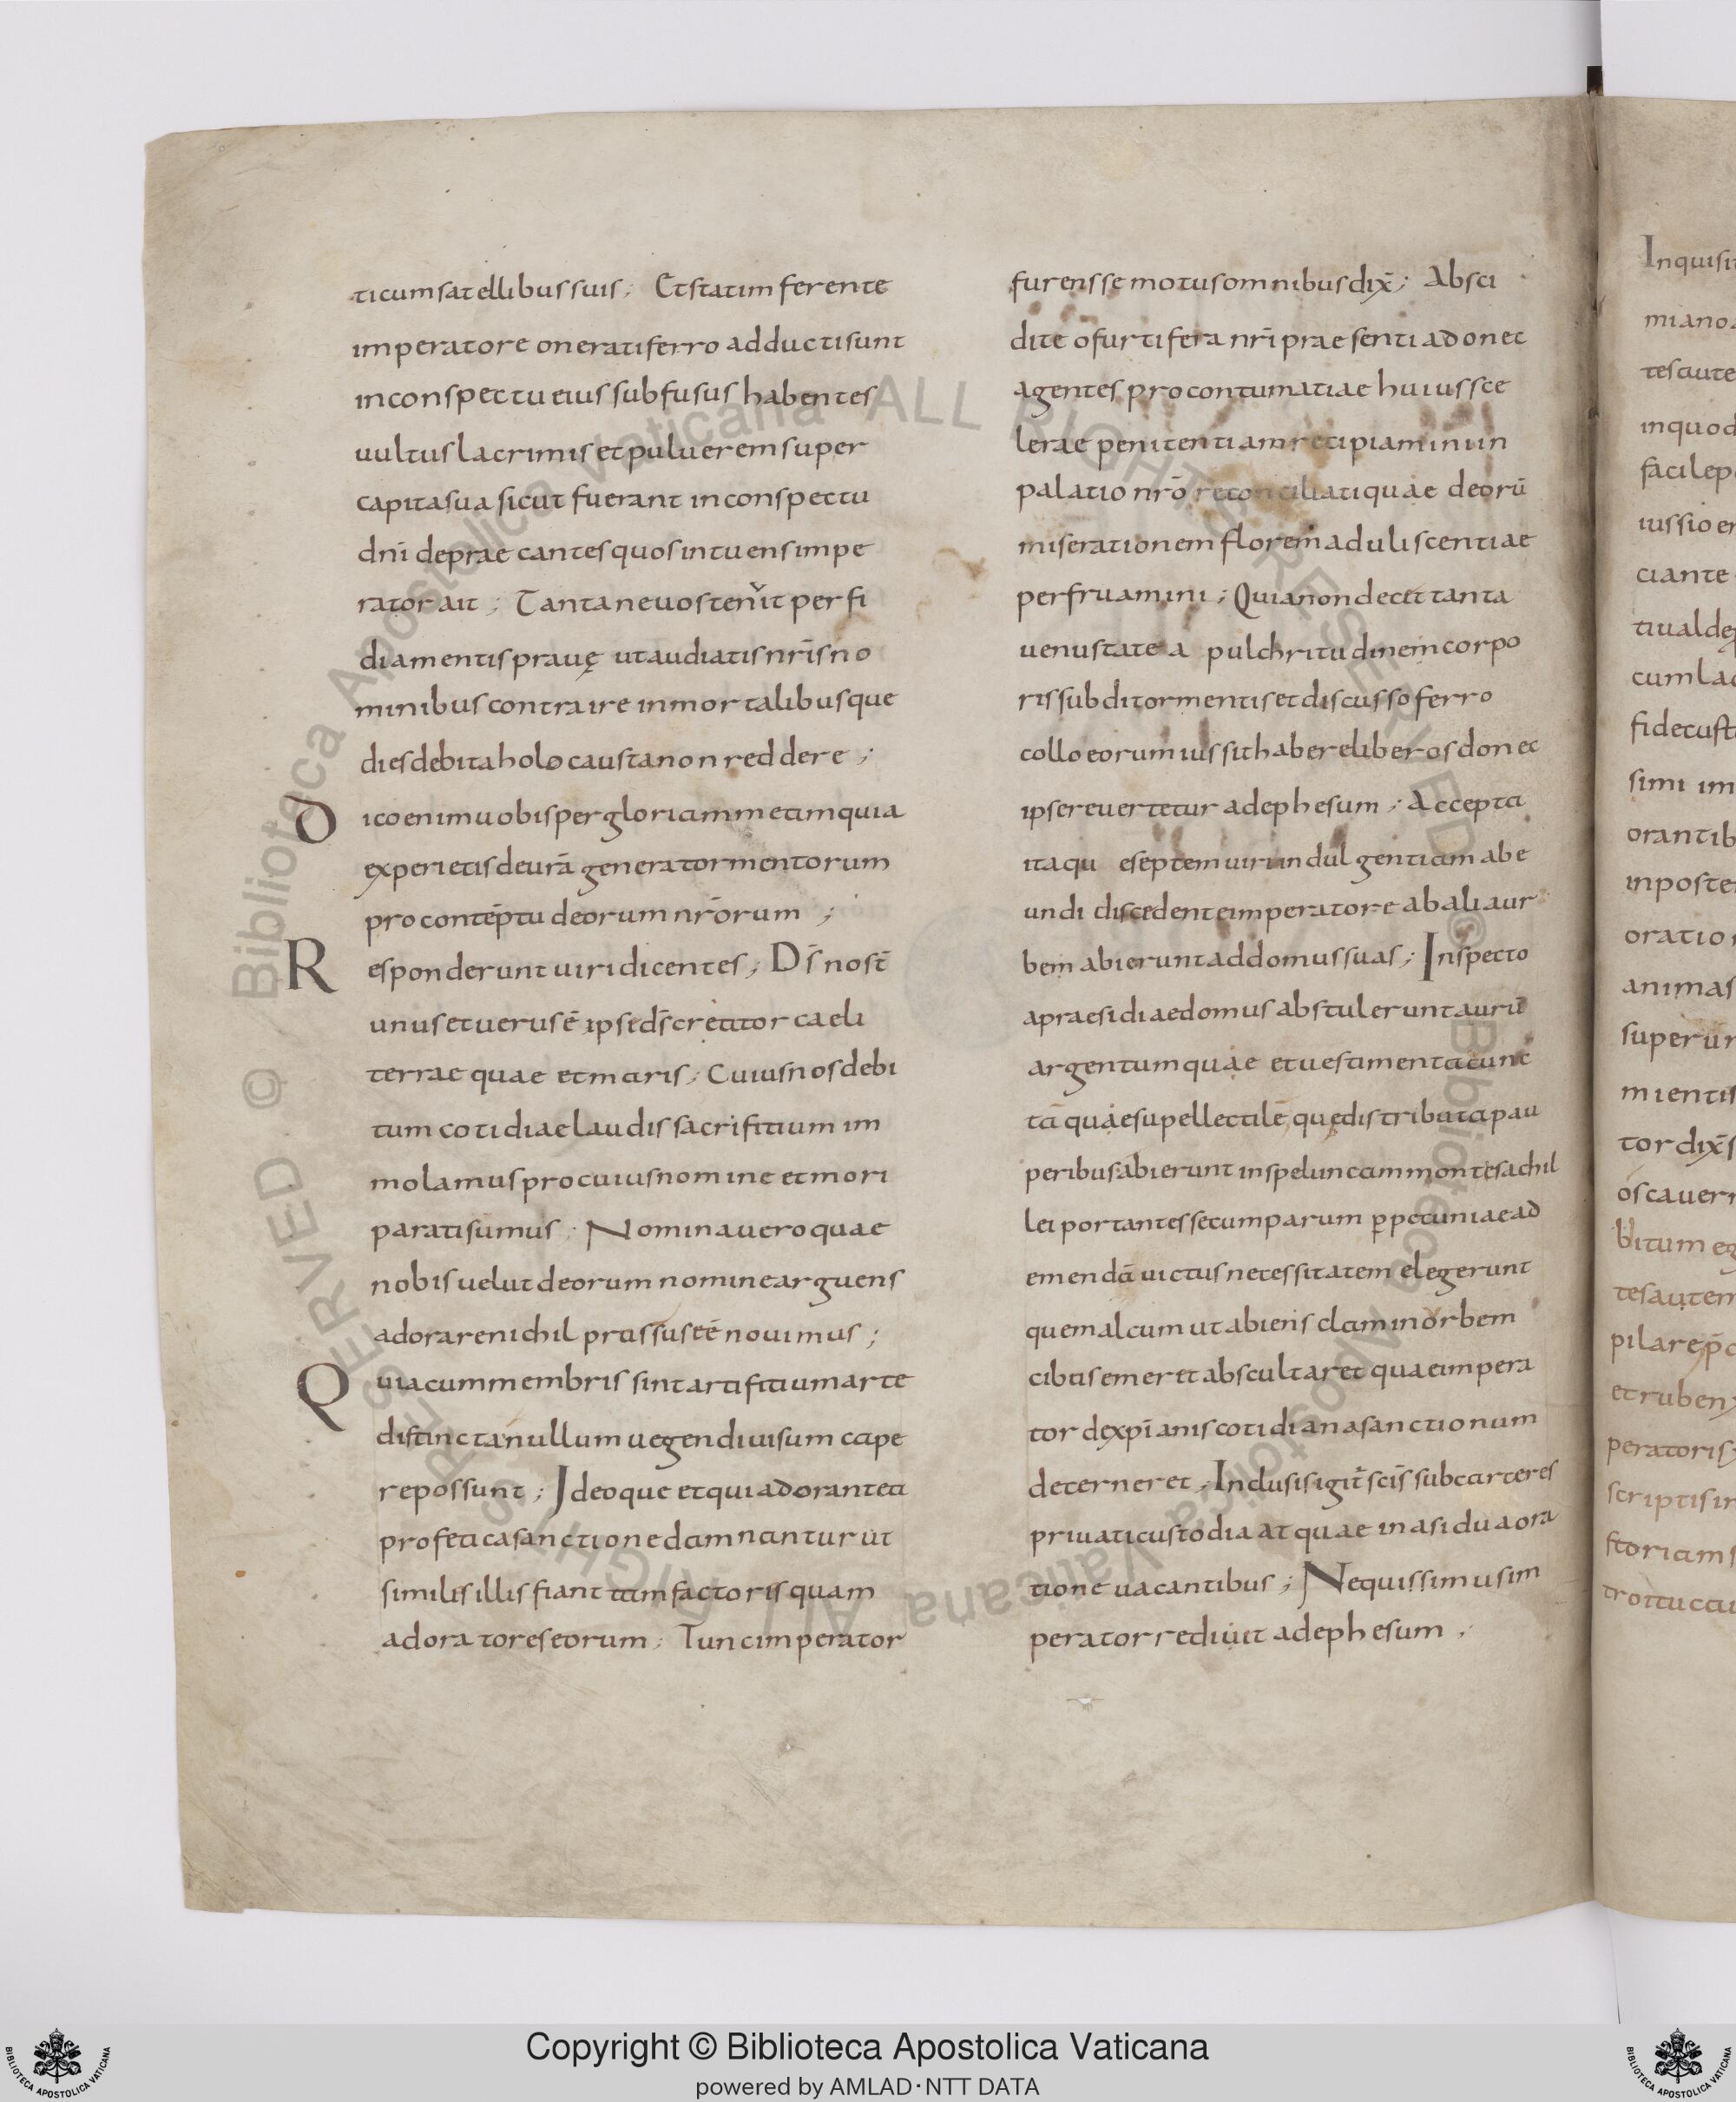 ticum satellibus suis; Et statim ferente
imperatore onerati ferro adducti sunt
in conspectu eius subfusus habentes
uultus lacrimis et puluerem super
capita sua sicut fuerant in conspectu
dnī deprae cantes quos intuens impe
rator ait; Tanta ne uos tenuit perfi
dia mentis prauę ut audiatis nrīs no
minibus contraire inmortalibusque
dies debita holocausta non reddere;
Dico enim uobis per gloriam metam quia
experietis de urā genera tormentorum
pro contēptu deorum nrōrum;
Responderunt uiri dicentes; Ds̄ nost̄
unus et uerus ē ipse ds̄ creator caeli
terrae quae et maris; Cuius nos debi
tum cotidiae laudis sacrifitium im
molamus pro cuius nomine et mori
parati sumus. Nomina uero quae
nobis uelut deorum nomine arguens
adorare nichil prassus eē nouimus;
Quia cum membris sint artifitium arte
distincta nullum uegendi uisum cape
re possunt; Ideoque et qui adorant ea
profetica sanctione damnantur ut
similis illis fiant tam factoris quam
adoratores eorum; Tunc imperator
furens se motus omnibus dix̄; Absci
dite o furtifera nrī praesenti ad onec
agentes pro contumatiae huius sce
lerae penitentiam recipiamini in
palatio nrō reconciliati quae deorū
miserationem florem aduliscentiae
perfruamini; Quia non decet tanta
uenustate a pulchritudinem corpo
ris subdi tormentis et discusso ferro
collo eorum iussit habere liberos donec
ipse reuertetur ad ephesum; Accepta
itaqu e septem uiri indulgentiam abe
undi discedente imperatore ab alia ur
bem abierunt ad domus suas; Inspecto
a praesidiae domus abstulerunt aurū
argentum quae et uestimenta cunc
tā quae supellectilē que distributa pau
peribus abierunt in speluncam montes achil
lei portantes secum parum p̄ pecuniae ad
emendā uictus necessitatem elegerunt
que malcum ut abiens clam in orbem
cibus emeret abscultaret quae impera
tor de xp̄ianis cotidiana sanctionum
decerneret; Inclusis igit̄ scīs sub carceres
priuati custodia at quae in asidua ora
tione uacantibus; Nequissimus im
perator rediuit ad ephesum;
Copyright © Biblioteca Apostolica Vaticana
powered by AMLAD·NTT DATA